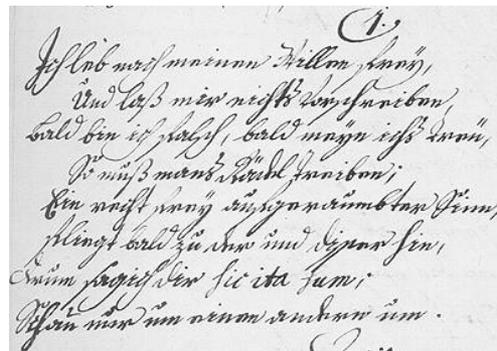 1.
Ich leb nach meinen Willen frey,
Und laß mir nichts vorschreiben,
bald bin ich falsch, bald meyn ichs treü,
So muß mans Rädel treiben;
Ein recht frey ausgeraumbter Sinn,
fliegt bald zu der und diser hin,
drum sag ich dir sic ita sum;
Schau nur um einen andern um.